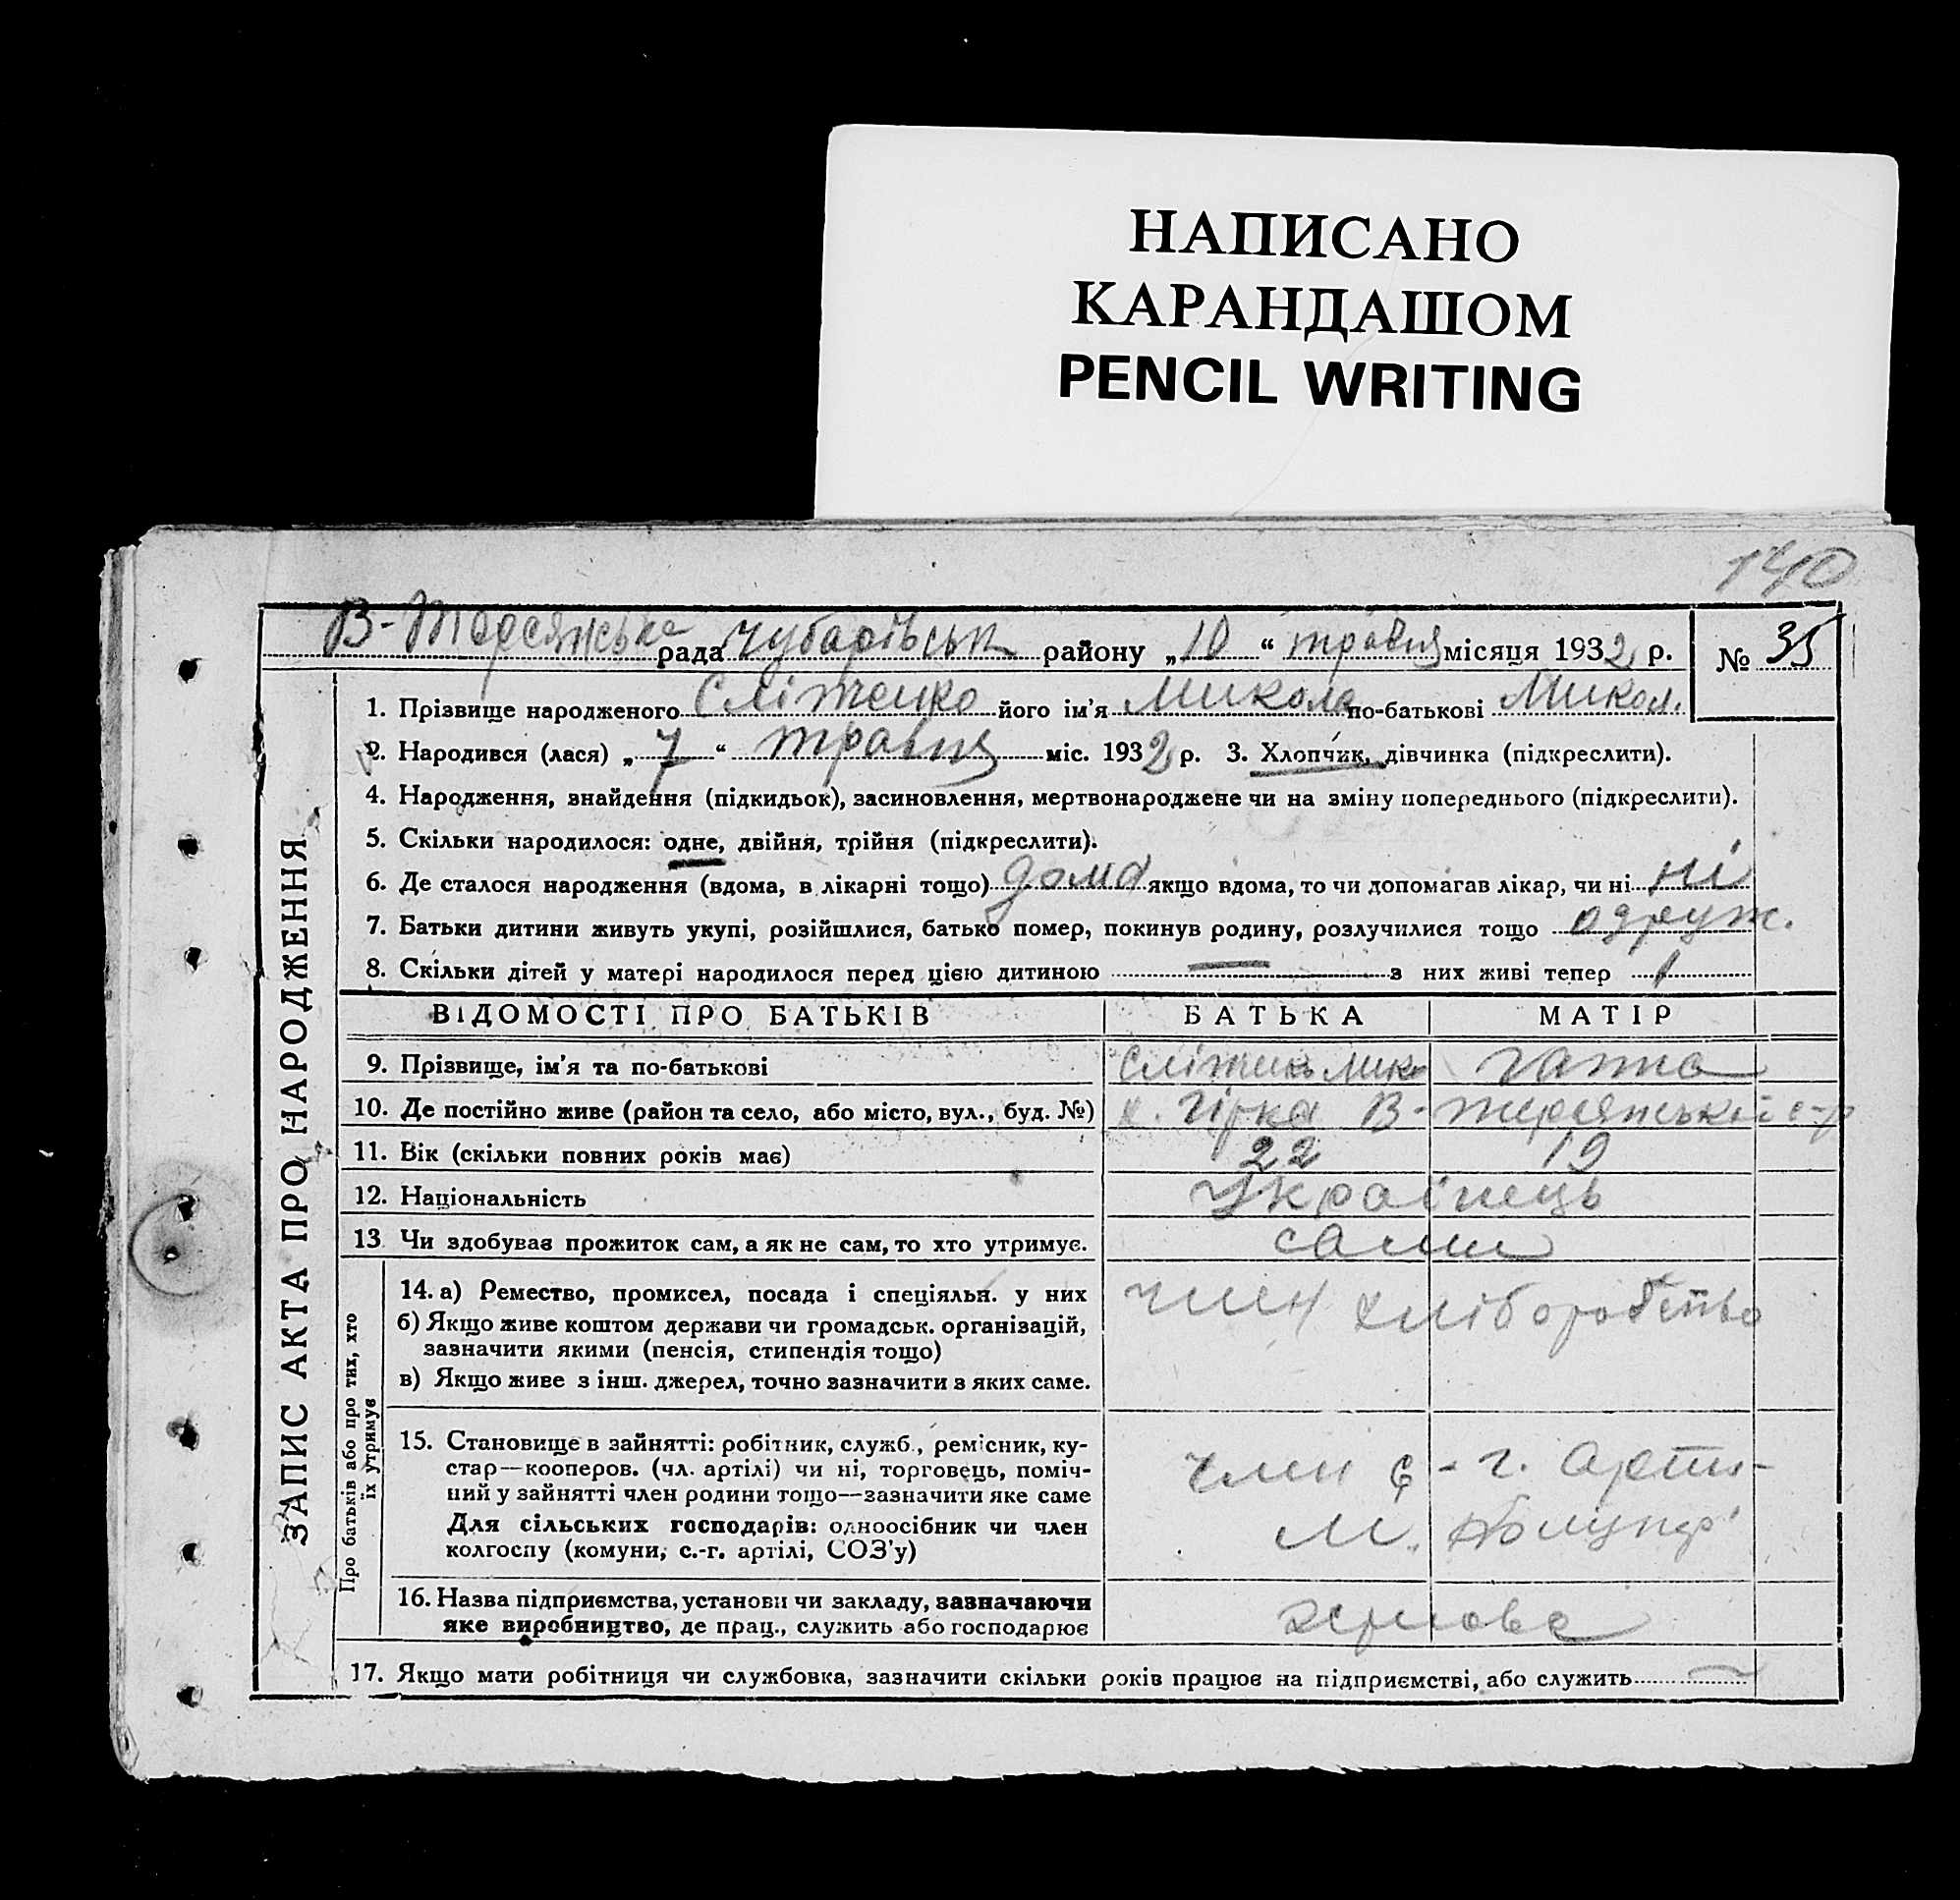 НАПИСАНО
КАРАНДАШОМ
PENCIL WRITING
140
В-Терсянська рада Чубарівськ району „10“ травня місяця 1932 р. № 35
1. Прізвище народженого Слітенко його ім'я Микола по-батькові Микол.
2. Народився (лася) „7“ травня міс. 1932 р. 3. Хлопчик, дівчинка (підкреслити).
4. Народження, знайдення (підкидьок), засиновлення, мертвонароджене чи на зміну попереднього (підкреслити).
5. Скільки народилося: одне, двійня, трійня (підкреслити).
6. Де сталося народження (вдома, в лікарні тощо) дома якщо вдома, то чи допомагав лікар, чи ні ні
7. Батьки дитини живуть укупі, розійшлися, батько помер, покинув родину, розлучилися тощо одруж.
8. Скільки дітей у матері народилося перед цією дитиною — з них живі тепер 1
ЗАПИС АКТА ПРО НАРОДЖЕННЯ
ВІДОМОСТІ ПРО БАТЬКІВ БАТЬКА МАТІР
9. Прізвище, ім'я та по-батькові Мик Ганна
10. Де постійно живе (район та село, або місто, вул., буд. №) х. Гірка В-Терсянській с-р
11. Вік (скільки повних років має) 22 19
12. Національність Українець
13 Чи здобував прожиток сам, а як не сам, то хто утримує. сами
Про батьків або про тих, хто
їх утримує
14. а) Ремество, промисел, посада і спеціяльн. у них член хліборобство
б) Якщо живе коштом держави чи громадськ. організацій,
зазначити якими (пенсія, стипендія тощо)
в) Якщо живе з інш. джерел, точно зазначити з яких саме.
15. Становище в зайнятті: робітник, служб., ремісник, ку-
стар—кооперов. (чл. артілі) чи ні, торговець, поміч-
ний у зайнятті член родини тощо—зазначити яке саме
Для сільських господарів: одноосібник чи член
колгоспу (комуни, с.-г. артілі, СОЗ'у)
член с-г. арти-
16. Назва підприємства, установи чи закладу, зазначаючи
яке виробництво, де прац., служить або господарює
17. Якщо мати робітниця чи службовка, зазначити скільки років працює на підприємстві, або служить —